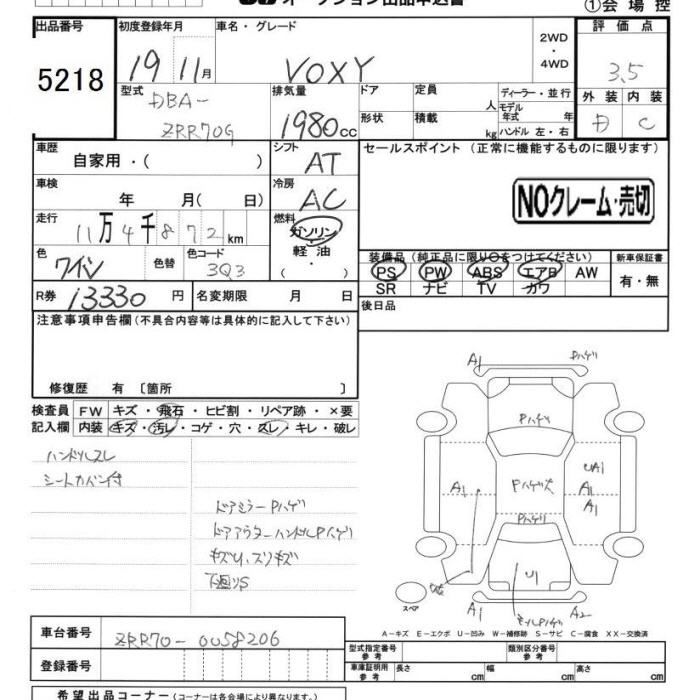 オークション出品申込書
①会場控
出品番号
5218
初度登録年月
19 11月
車名・グレード
VOXY
2WD
・
4WD
評価点
3.5
外装 内装
D C
型式
DBA-
ZRR70G
排気量
1980cc
ドア
定員
人
ディーラー・並行
モデル
年式 年
形状
積載
kg
ハンドル 左・右
車歴
自家用・( )
シフト
AT
セールスポイント(正常に機能するものに限ります)
車検
年 月( 日)
冷房
AC
NOクレーム・売切
走行
11万4千872km
燃料
ガソリン
・
軽油
色
ワイン
色替
色コード
3Q3
装備品(純正品に限り○をつけてください)
PS PW ABS エアB AW
SR ナビ TV カワ
新車保証書
有・無
R券 13330円
名変期限 月 日
後日品
注意事項申告欄(不具合内容等は具体的に記入して下さい)
修復歴 有〔箇所 〕
検査員
記入欄
FW キズ・飛石・ヒビ割・リペア跡・×要
内装 キズ・汚レ・コゲ・穴・スレ・キレ・破レ
ハンドルスレ
シートカバー付
ドアミラーPハゲ
ドアアウターハンドルPハゲ
キズU、スリキズ
下廻りS
A1 Pハゲ
Pハゲ
A1
Pハゲ大
UA1
A1
A1
Pハゲ
U1
スペア
A1
モールPハゲ
A2
A-キズ E-エクボ U-凹み W-補修跡 S-サビ C-腐食 XX-交換済
車台番号
ZRR70-0058206
登録番号
型式指定番号
参考
類別区分番号
参考
車庫証明用
参考
長さ cm
幅 cm
高さ cm
希望出品コーナー(コーナーは各会場により異なります。)